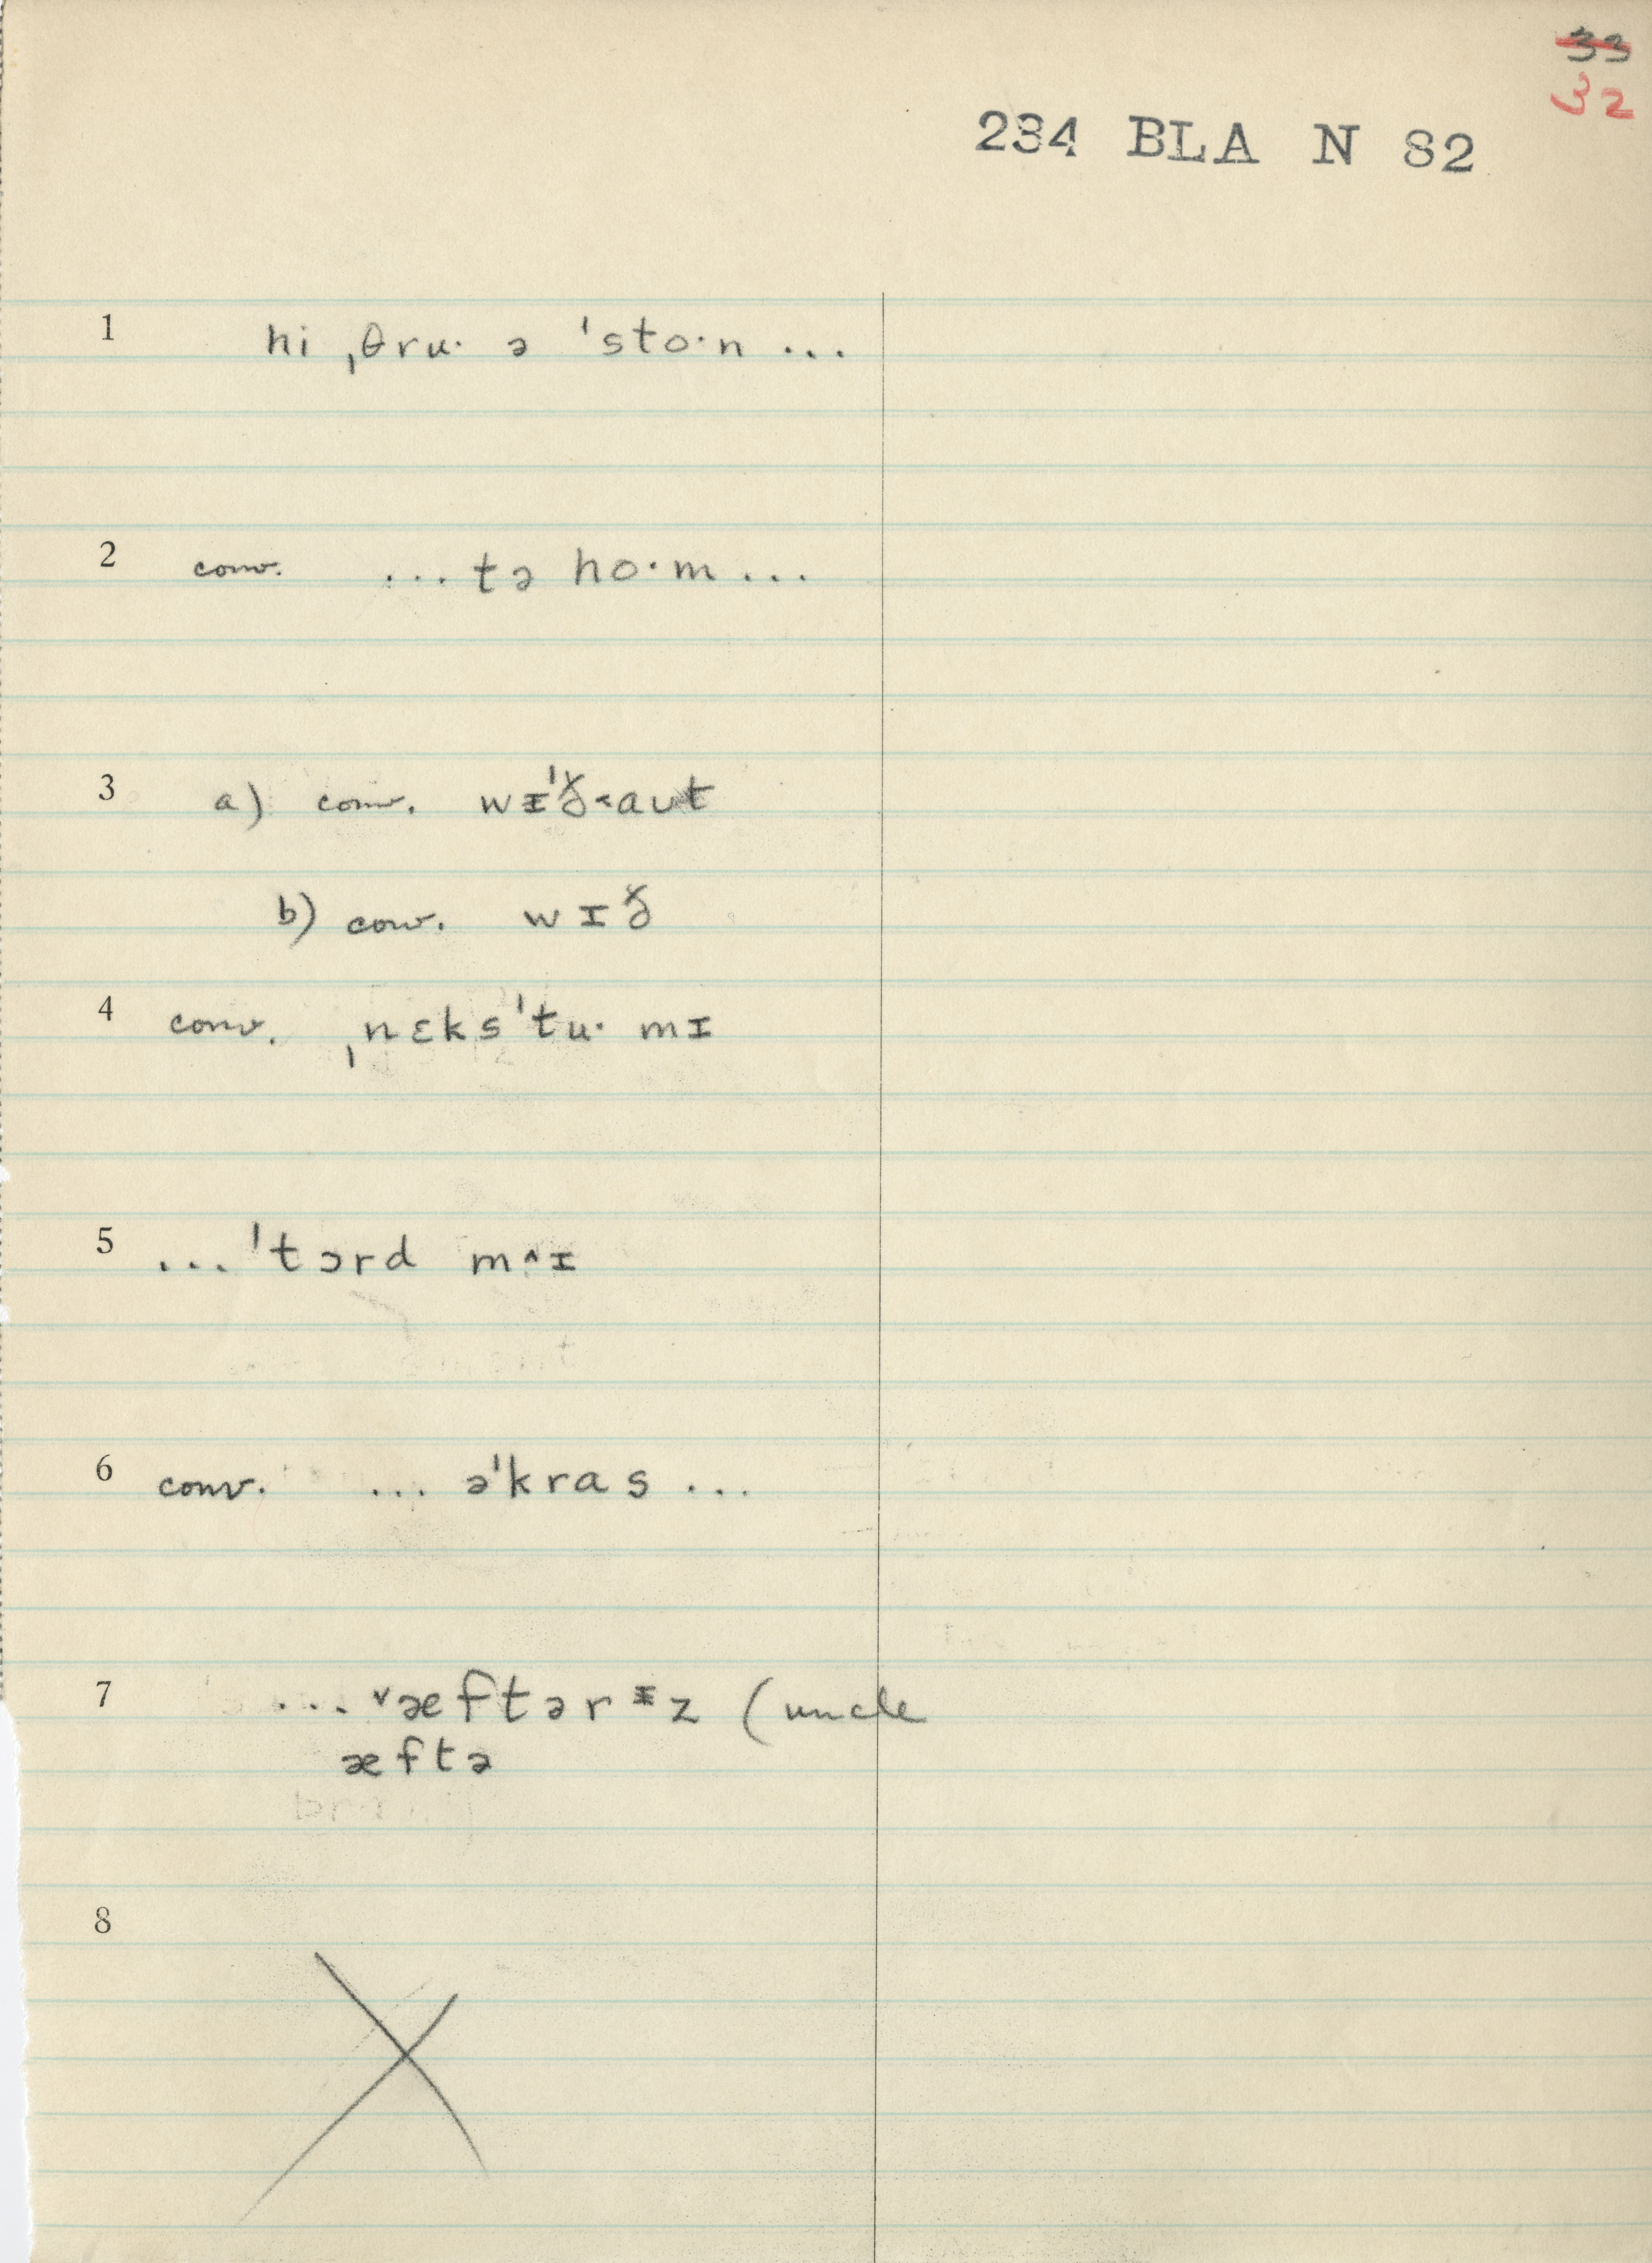 33
32
234 BLA N 82
1 hi ˌθru· ə ˈsto·n ...
2 conv. ...tə ho·m...
3 a) conv. wɪˈð˂aut
b) conv. wɪð
4 conv. ˌnɛksˈtu· mɪ
5 ...ˈtɔrd m^ɪ
6 conv. ... əˈkras ...
7 ... ˅æftərɪz (uncle
æftə
8